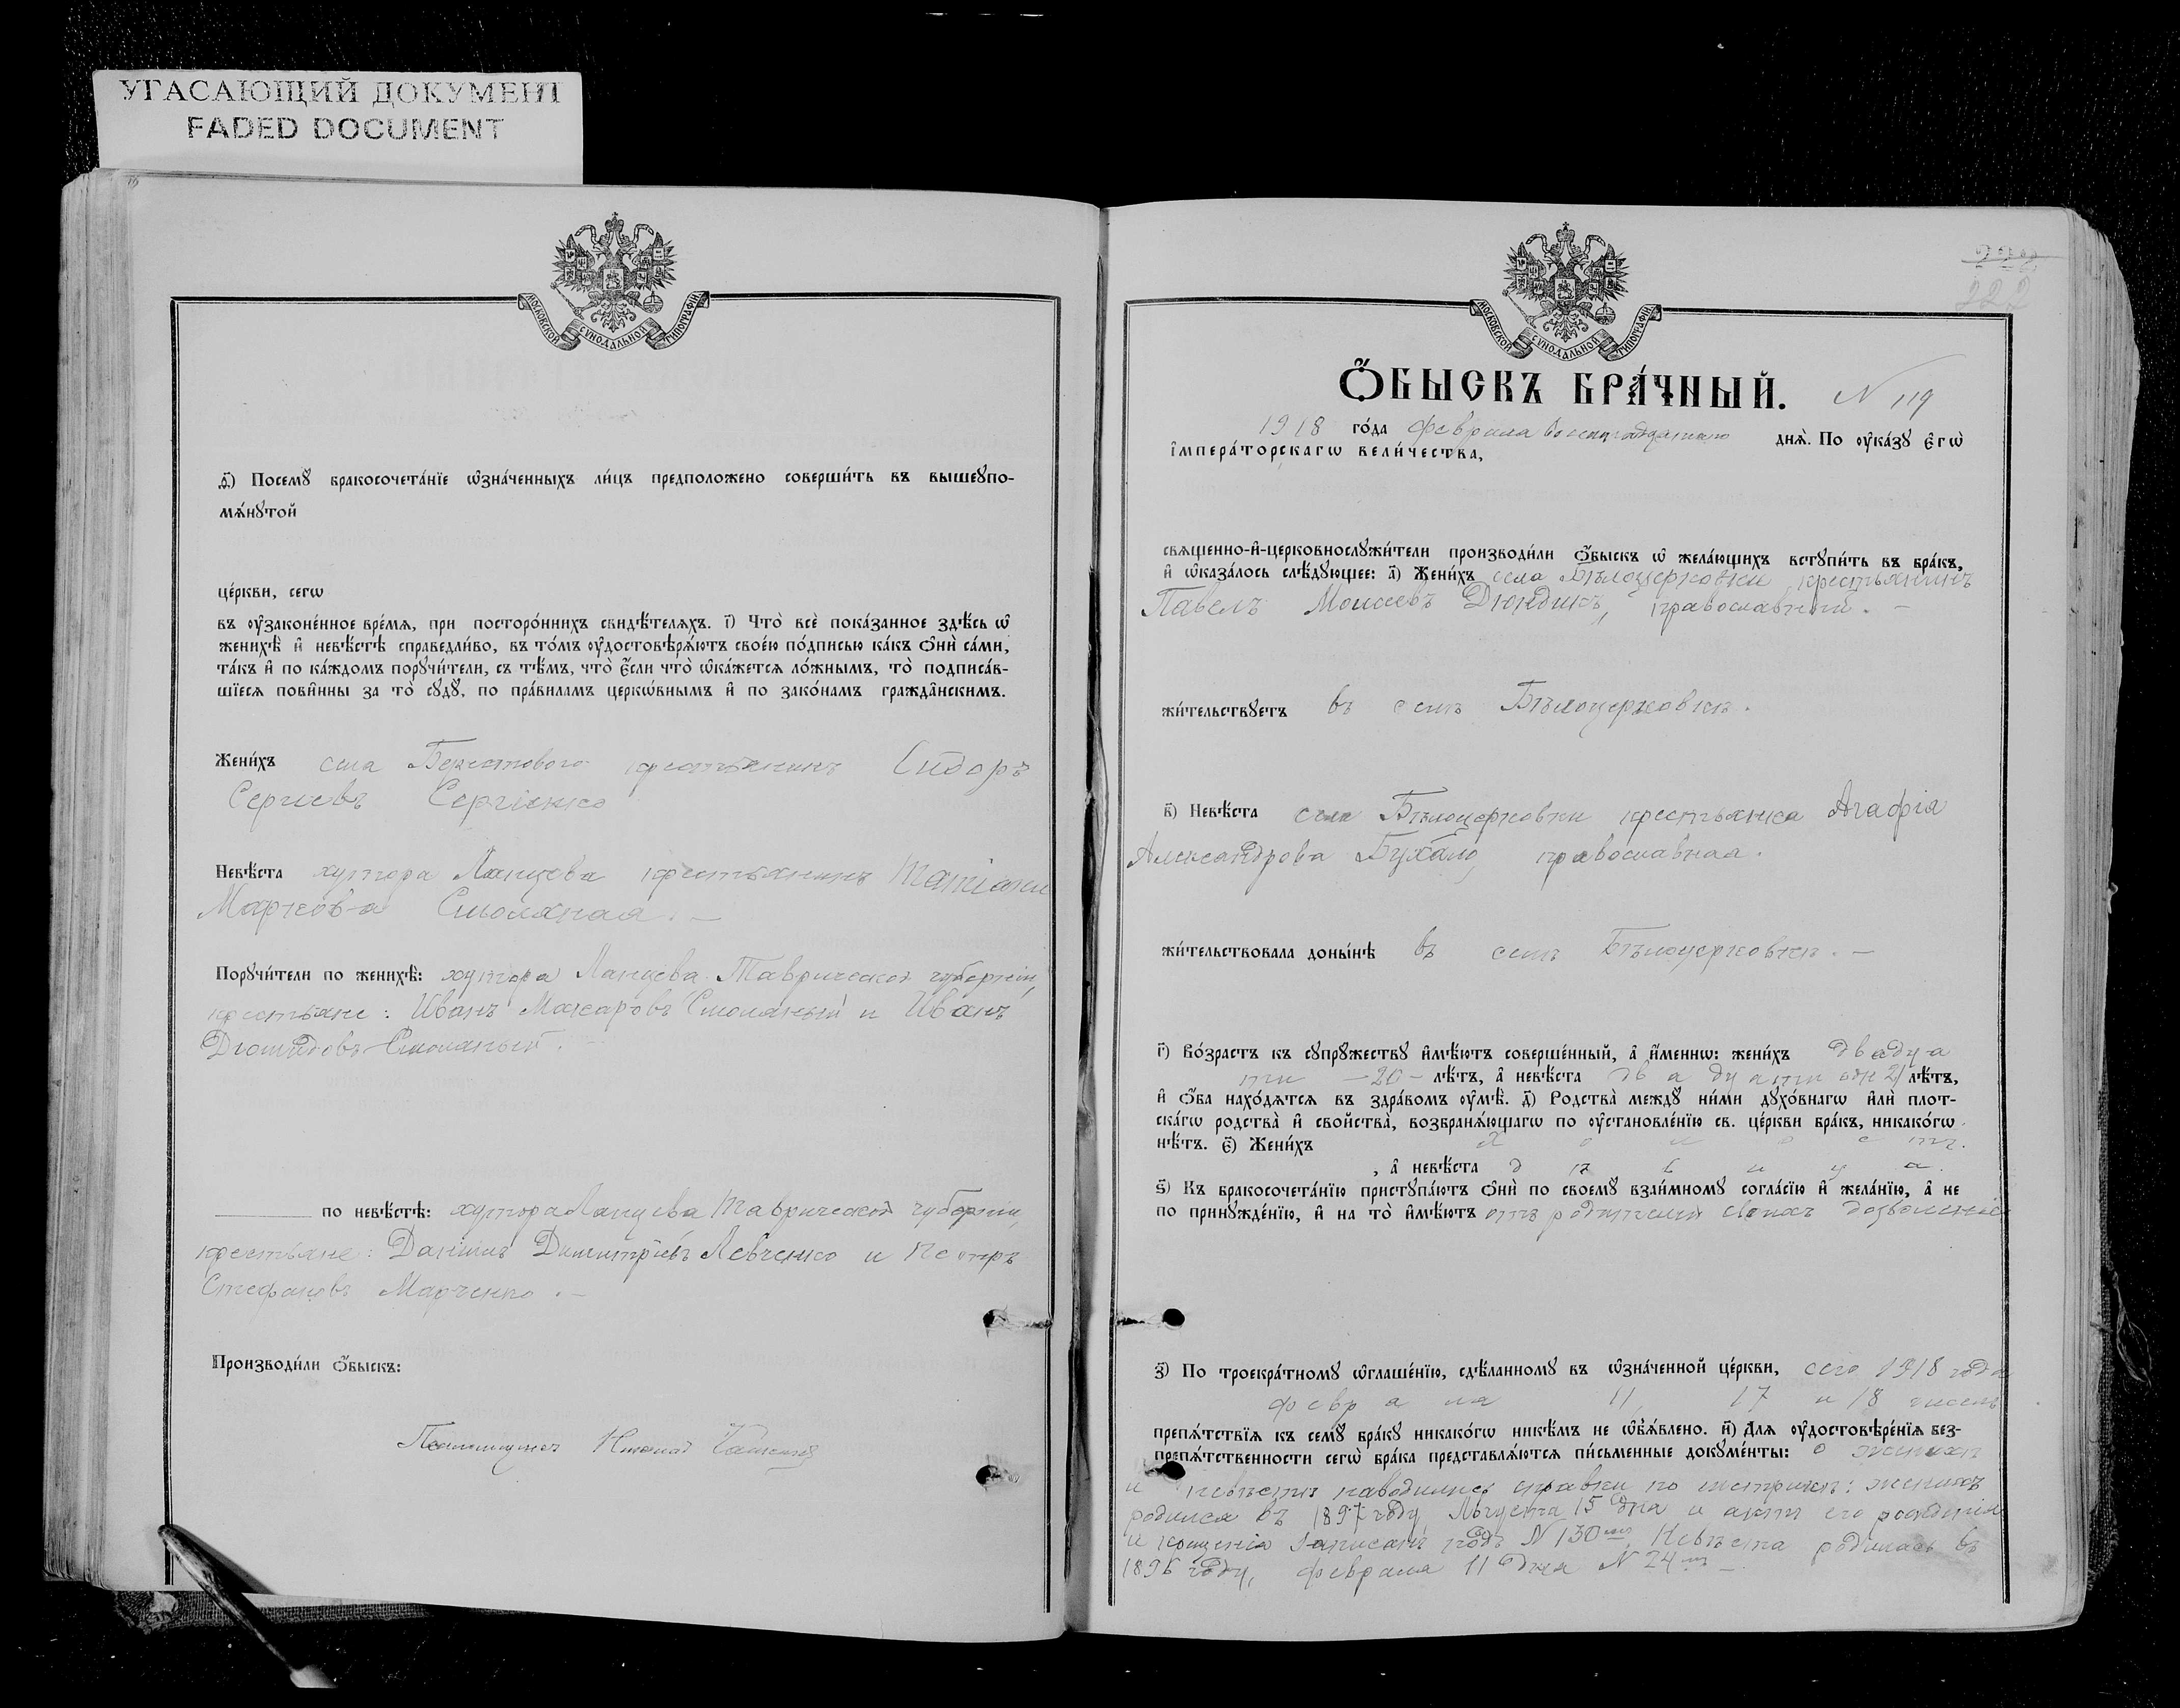 УГАСАЮЩИЙ ДОКУМЕНТ
FADED DOCUMENT
МОСКОВСКОЙ СѴНОДАЛЬНОЙ ТИПОГРАФІИ
д҃і) Посемꙋ бракосочета́нїе ѡ҆зна́ченныхъ ли́цъ предположено соверши́ть въ вышеꙋпо-
мѧ́нꙋтой
це́ркви, сегѡ
въ оу҆законе́нное вре́мѧ, при посторо́ннихъ свидѣ́телѧхъ. і҃) Что̀ всѐ пока́занное здѣ́сь ѡ҆
женихѣ̀ и҆ невѣ́стѣ справедли́во, въ то́мъ оу҆достовѣрѧ́ютъ свое́ю по́дписью ка́къ ѻ҆нѝ са́ми,
та́къ и҆ по ка́ждомъ порꙋчи́тели, съ тѣ́мъ, что̀ є҆́сли что̀ ѡ҆ка́жетсѧ ло́жнымъ, то̀ подписа́в-
шїесѧ пови́нны за то̀ сꙋдꙋ̀, по пра́виламъ церкѡ́внымъ и҆ по зако́намъ гражда́нскимъ.
Жени́хъ села Берестового крестьянинъ Сидоръ
Сергіевъ Сергіенко
Невѣ́ста хутора Ланцева крестьянинъ
Маркова Смоляная. —
Порꙋчи́тели по женихѣ̀: хутора Ланцева Таврической губерніи,
крестьяне: Иванъ Макаровъ Смоляный и Иванъ
Смоляный.
по невѣ́стѣ: хутора Ланцева Таврической губерніи,
крестьяне: Даніилъ Димитріевъ Левченко и Петръ
Стефановъ Марченко. —
Производи́ли ѻ҆́быскъ:
Николай
МОСКОВСКОЙ СѴНОДАЛЬНОЙ ТИПОГРАФІИ
222
Ѻ҆́БЫСКЪ БРА́ЧНЫЙ. N 119
1918 го́да февраля восемнадцатаго днѧ̀. По оу҆ка́зꙋ є҆гѡ̀
і҆мпера́торскагѡ вели́чества,
свѧщенно-и҆-церковнослꙋжи́тели производи́ли ѻ҆́быскъ ѡ҆ жела́ющихъ встꙋпи́ть въ бра́къ,
и҆ ѡ҆каза́лось слѣ́дꙋющее: а҃) Жени́хъ села Бѣлоцерковки крестьянинъ
Павелъ Моисеевъ Дюндикъ, православный. —
жи́тельствꙋетъ въ селѣ Бѣлоцерковкѣ.
в҃) Невѣ́ста села Бѣлоцерковки крестьянка Агафія
Александрова Бухало, православная.
жи́тельствовала доны́нѣ въ селѣ Бѣлоцерковкѣ. —
г҃) Во́зрастъ къ сꙋпрꙋ́жествꙋ и҆мѣ́ютъ соверше́нный, а҆ и҆́меннѡ: жени́хъ двадца
ти — 20 — лѣ́тъ, а҆ невѣ́ста двадцати одн 21 лѣ́тъ,
и҆ ѻ҆́ба нахо́дѧтсѧ въ здра́вомъ оу҆мѣ̀. д҃) Родства̀ междꙋ̀ ни́ми дꙋхо́внагѡ и҆лѝ плот-
ска́гѡ родства̀ и҆ сво́йства̀, возбранѧ́ющагѡ по оу҆становле́нїю св. це́ркви бра́къ, никако́гѡ
нѣ́тъ. є҃) Жени́хъ холостъ.
, а҆ невѣ́ста дѣвица.
ѕ҃) Къ бракосочета́нїю пристꙋпа́ютъ ѻ҆нѝ по своемꙋ̀ взаи́мномꙋ согла́сїю и҆ жела́нїю, а҆ не
по принꙋжде́нїю, и҆ на то̀ и҆мѣ́ютъ отъ родителей своихъ дозволеніе
з҃) По троекра́тномꙋ ѡ҆глаше́нїю, сдѣ́ланномꙋ въ ѡ҆зна́ченной це́ркви, сего 1918 года
февраля 11, 17 и 18 чиселъ
препѧ́тствїѧ къ семꙋ̀ бра́кꙋ никако́гѡ никѣ́мъ не ѡ҆б̾ѧ́влено. и҃) Длѧ̀ оу҆достовѣре́нїѧ без-
препѧ́тственности сегѡ̀ бра́ка представлѧ́ютсѧ пи́сьменные докꙋме́нты: о женихѣ
и невѣстѣ наводились справки по метрикѣ: женихъ
родился въ 1897 году, Августа 15 дня и актъ его рожденія
и крещенія записанъ подъ N 130мъ. Невѣста родилась въ
1896 году, февраля 11 дня N 24мъ —